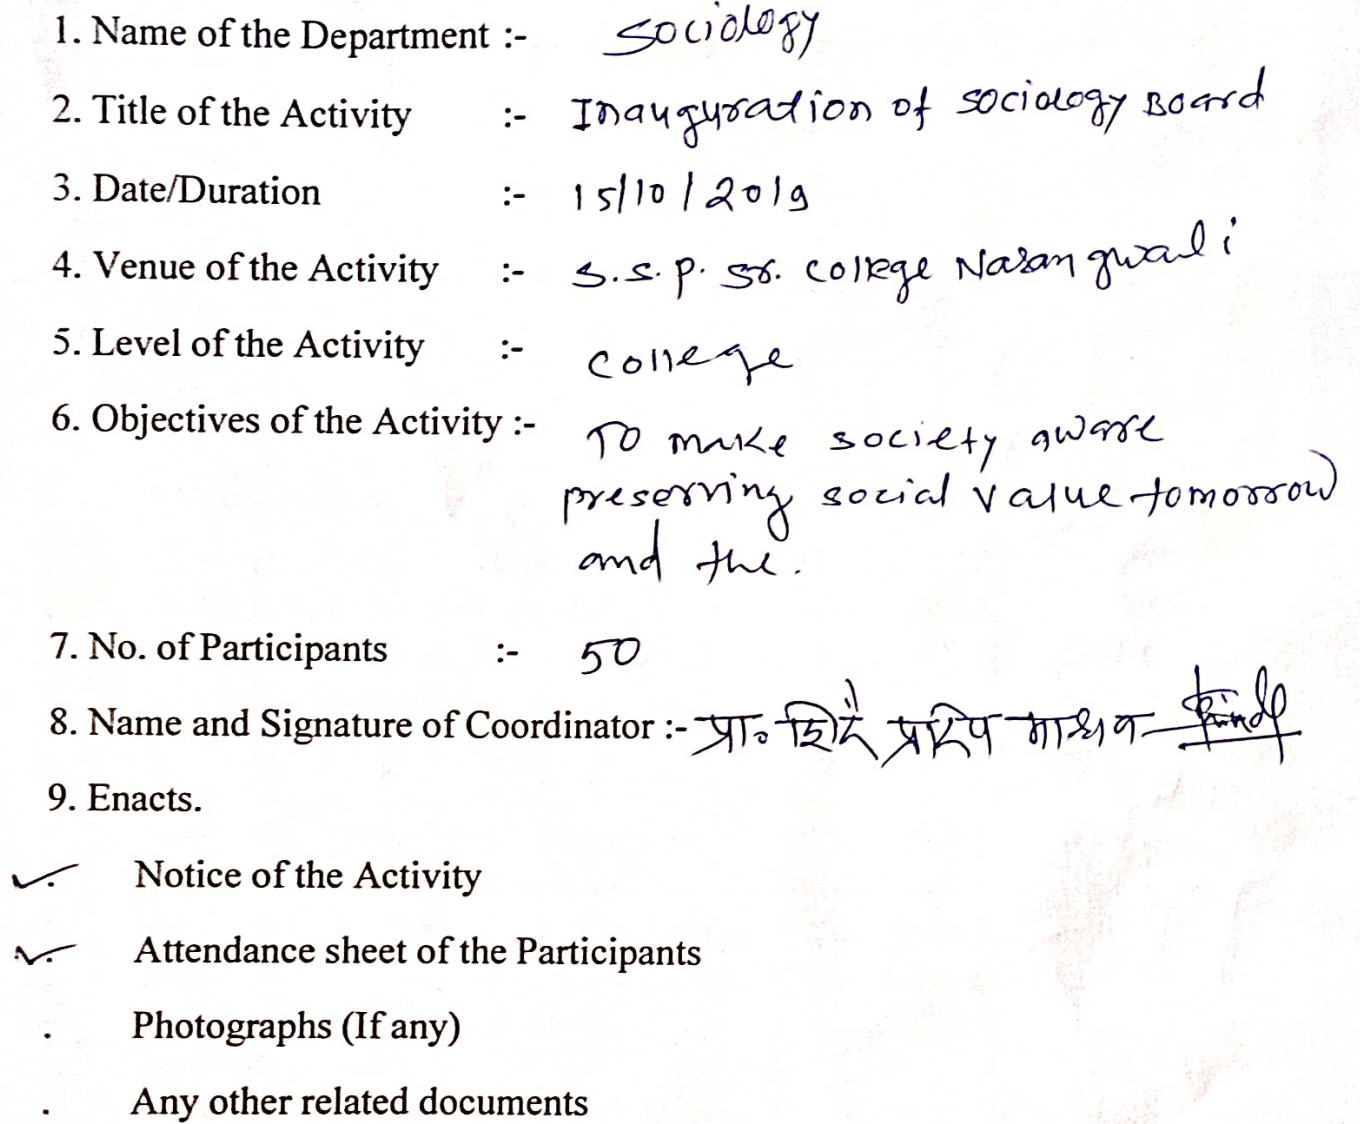 1. Name of the Department :- Sociology
2. Title of the Activity :- Inauguration of sociology Board
3. Date/Duration :- 15/10/2019
4. Venue of the Activity :- S.S.P. Sr. college Narangwadi
5. Level of the Activity :- college
6. Objectives of the Activity :- To make society aware
preserving social value tomorrow
and the.
7. No. of Participants :- 50
8. Name and Signature of Coordinator :- प्रा. शिंदे प्रदिप माधव
9. Enacts.
✓. Notice of the Activity
✓. Attendance sheet of the Participants
. Photographs (If any)
. Any other related documents